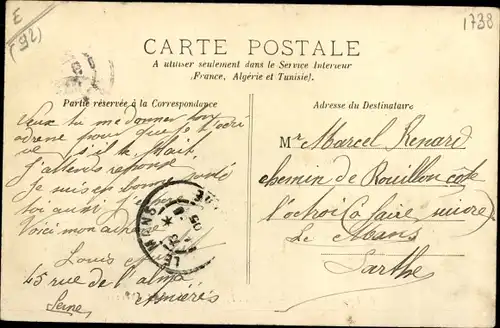 E
(92)
1738
CARTE POSTALE
A utiliser seulement dans le Service Interieur
(France, Algérie et Tunisie).
Partie réservée à la Correspondance
Adresse du Destinataire
Veux tu me donner ton
adresse pour que je t'écri
ve s'il te plait.
J'attends réponse
Je suis en bonne santé
toi aussi j'
Voici mon adresse
Louis
45 rue de l'alma
Asnières
Seine
Mr Marcel Renard
chemin de Rouillon côté
l'octroi (a faire suivre)
Le Mans
Sarthe
LE MANS
05